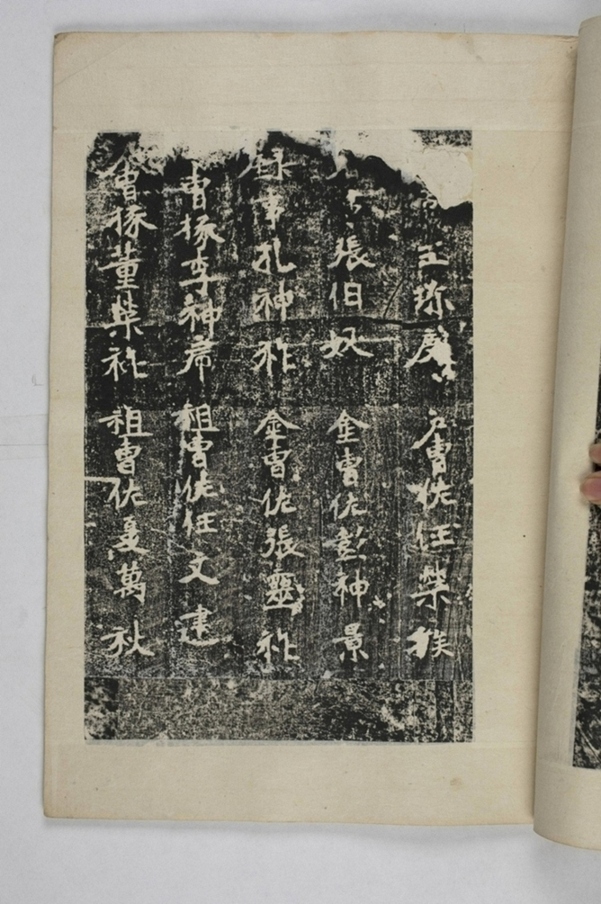 王珎㢑 户曹佐任榮族
張伯奴 金曹佐彭神景
録事孔神祚 金曹佐張靈祚
曹掾李神席 租曹佐任文建
曹掾董榮祚 租曹佐夏萬秋